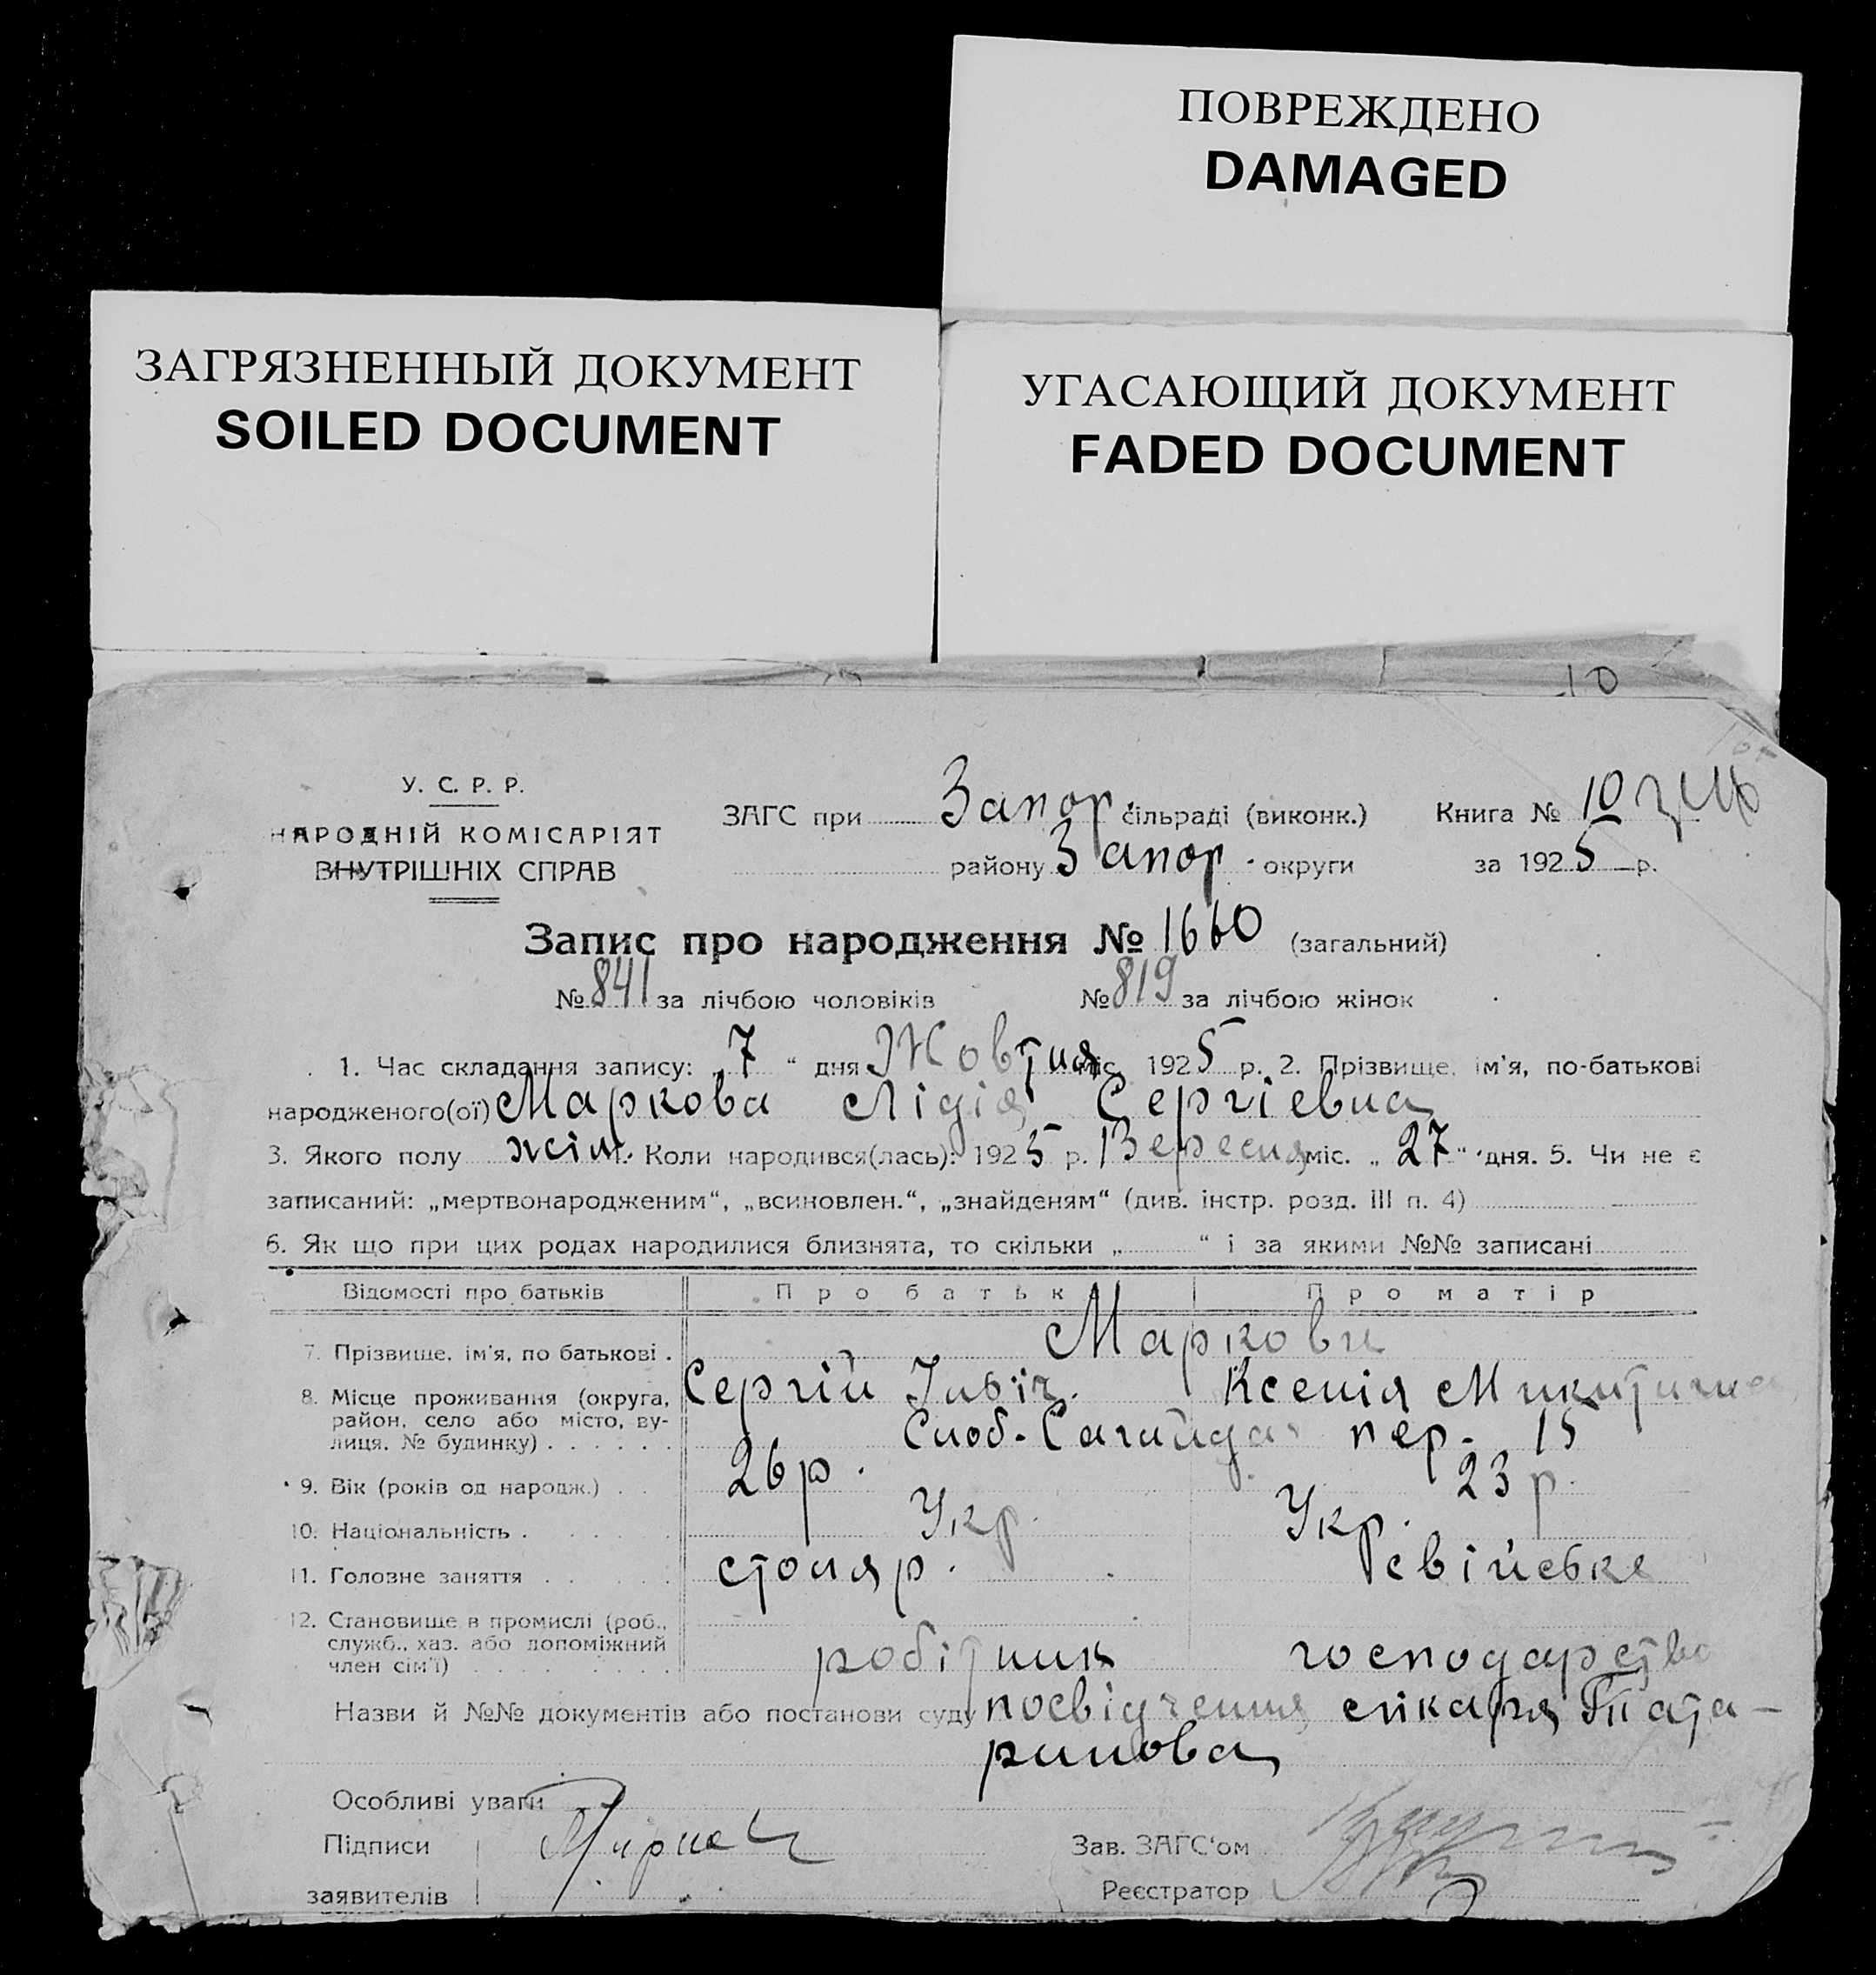 ПОВРЕЖДЕНО
DAMAGED
ЗАГРЯЗНЕННЫЙ ДОКУМЕНТ
SOILED DOCUMENT
УГАСАЮЩИЙ ДОКУМЕНТ
FADED DOCUMENT
10
У. С. Р. Р.
НАРОДНІЙ КОМІСАРІЯТ
ВНУТРІШНІХ СПРАВ
ЗАГС при Запор. сільраді (виконк.) Книга № 10
району Запор. округи за 1925 р.
Запис про народження № 1660 (загальний)
№ 841 за лічбою чоловіків № 819 за лічбою жінок
1. Час складання запису: „ 7 “ дня Жовтня міс. 1925 р. 2. Прізвище, ім'я, по-батькові
народженого(ої) Маркова Лідія Сергієвна
3. Якого полу жін. Коли народився(лась): 1925 р. Вересня міс. „ 27 “ дня. 5. Чи не є
записаний: „мертвонародженим“, „всиновлен.“, „знайденям“ (див. інстр. розд. III п. 4)
6. Як що при цих родах народилися близнята, то скільки „ “ і за якими №№ записані
Відомості про батьків Про батьк Про матір
7. Прізвище, ім'я, по батькові . Маркови
8. Місце проживання (округа, Сергій Ів-іч. Ксенія Микитична
район, село або місто, ву-
лиця, № будинку) . . . . . . Слоб. Сагайдач пер. 15
9. Вік (років од народж.) . . 26 р. 23 р.
10. Національність . Укр. Укр.
11. Головне заняття . . столяр. свійське
12. Становище в промислі (роб.,
служб., хаз. або допоміжний
член сім'ї) робітник господарство
Назви й №№ документів або постанови суду посвідчення лікаря Тата-
ринова
Особливі уваги
Підписи
заявителів
Зав. ЗАГС'ом
Реєстратор